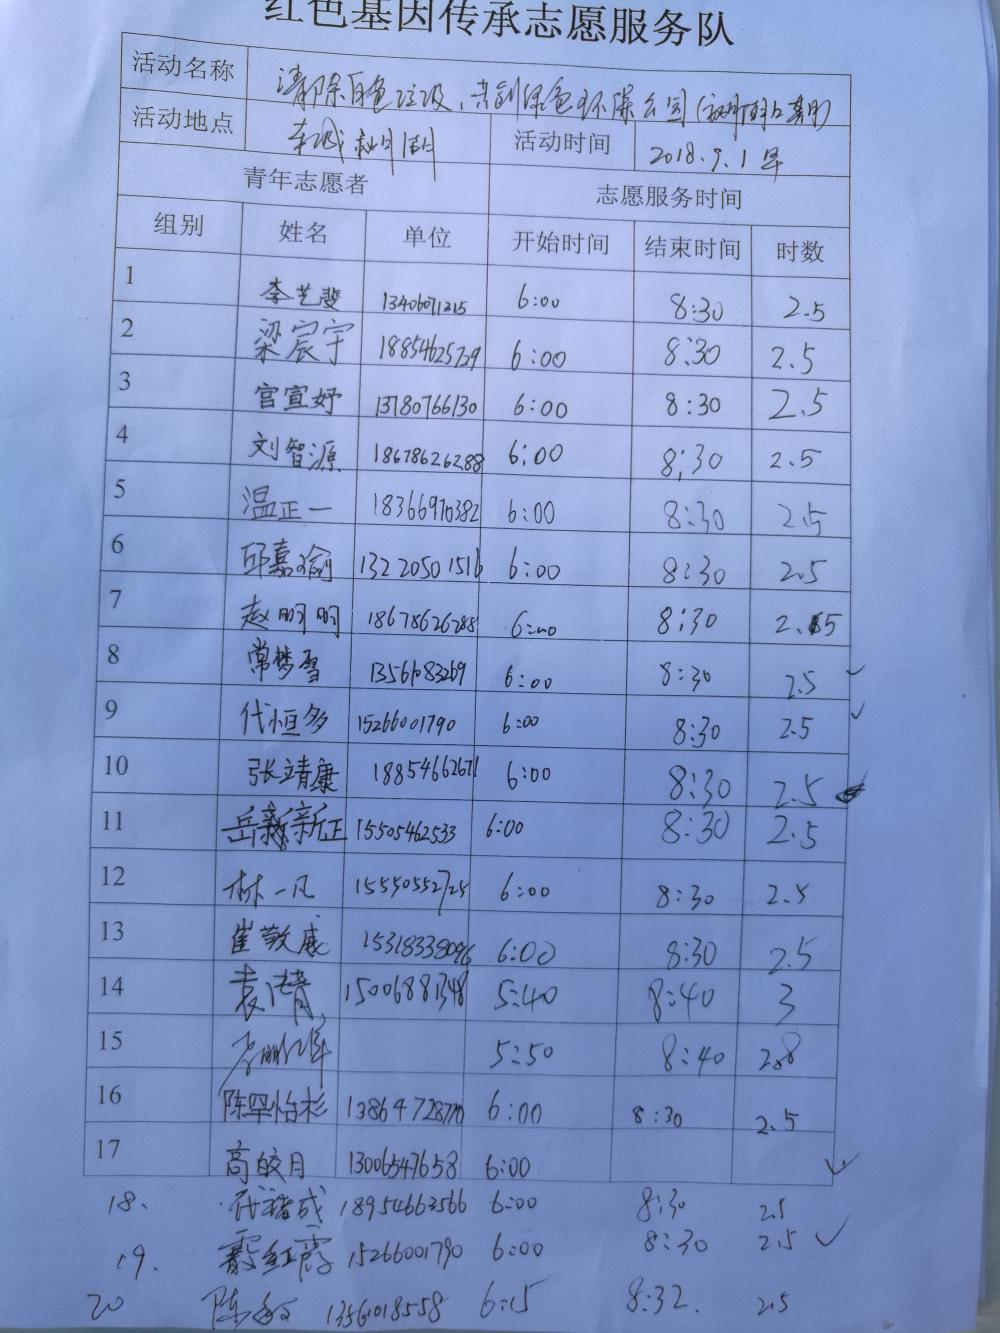 红色基因传承志愿服务队
活动名称 清除白色垃圾、共创绿色环保公司
活动地点 东城 活动时间 2018.9.1早
青年志愿者 志愿服务时间
组别 姓名 单位 开始时间 结束时间 时数
1 李艺斐 13406071215 6:00 8:30 2.5
2 梁宸宇 18854625729 6:00 8:30 2.5
3 宫宣妤 13780766130 6:00 8:30 2.5
4 刘智源 18678626288 6:00 8:30 2.5
5 温正一 18366970382 6:00 8:30 2.5
6 邱嘉瑜 13220501516 6:00 8:30 2.5
7 赵明明 18678626288 6:00 8:30 2.5
8 常梦雪 13561083269 6:00 8:30 2.5
9 代恒多 15266001790 6:00 8:30 2.5
10 张靖康 18854662671 6:00 8:30 2.5
11 岳新正 15505462533 6:00 8:30 2.5
12 林一凡 15550552725 6:00 8:30 2.5
13 崔敬威 15318338096 6:00 8:30 2.5
14 袁倩 15006881348 5:40 8:40 3
15 5:50 8:40 2.8
16 陈罕怡杉 13864728770 6:00 8:30 2.5
17 高皎月 13006547658 6:00
18. 18954663566 6:00 8:30 2.5
19. 红霞 15266001790 6:00 8:30 2.5
20 陈敏 13561018558 6:15 8:32. 2.5